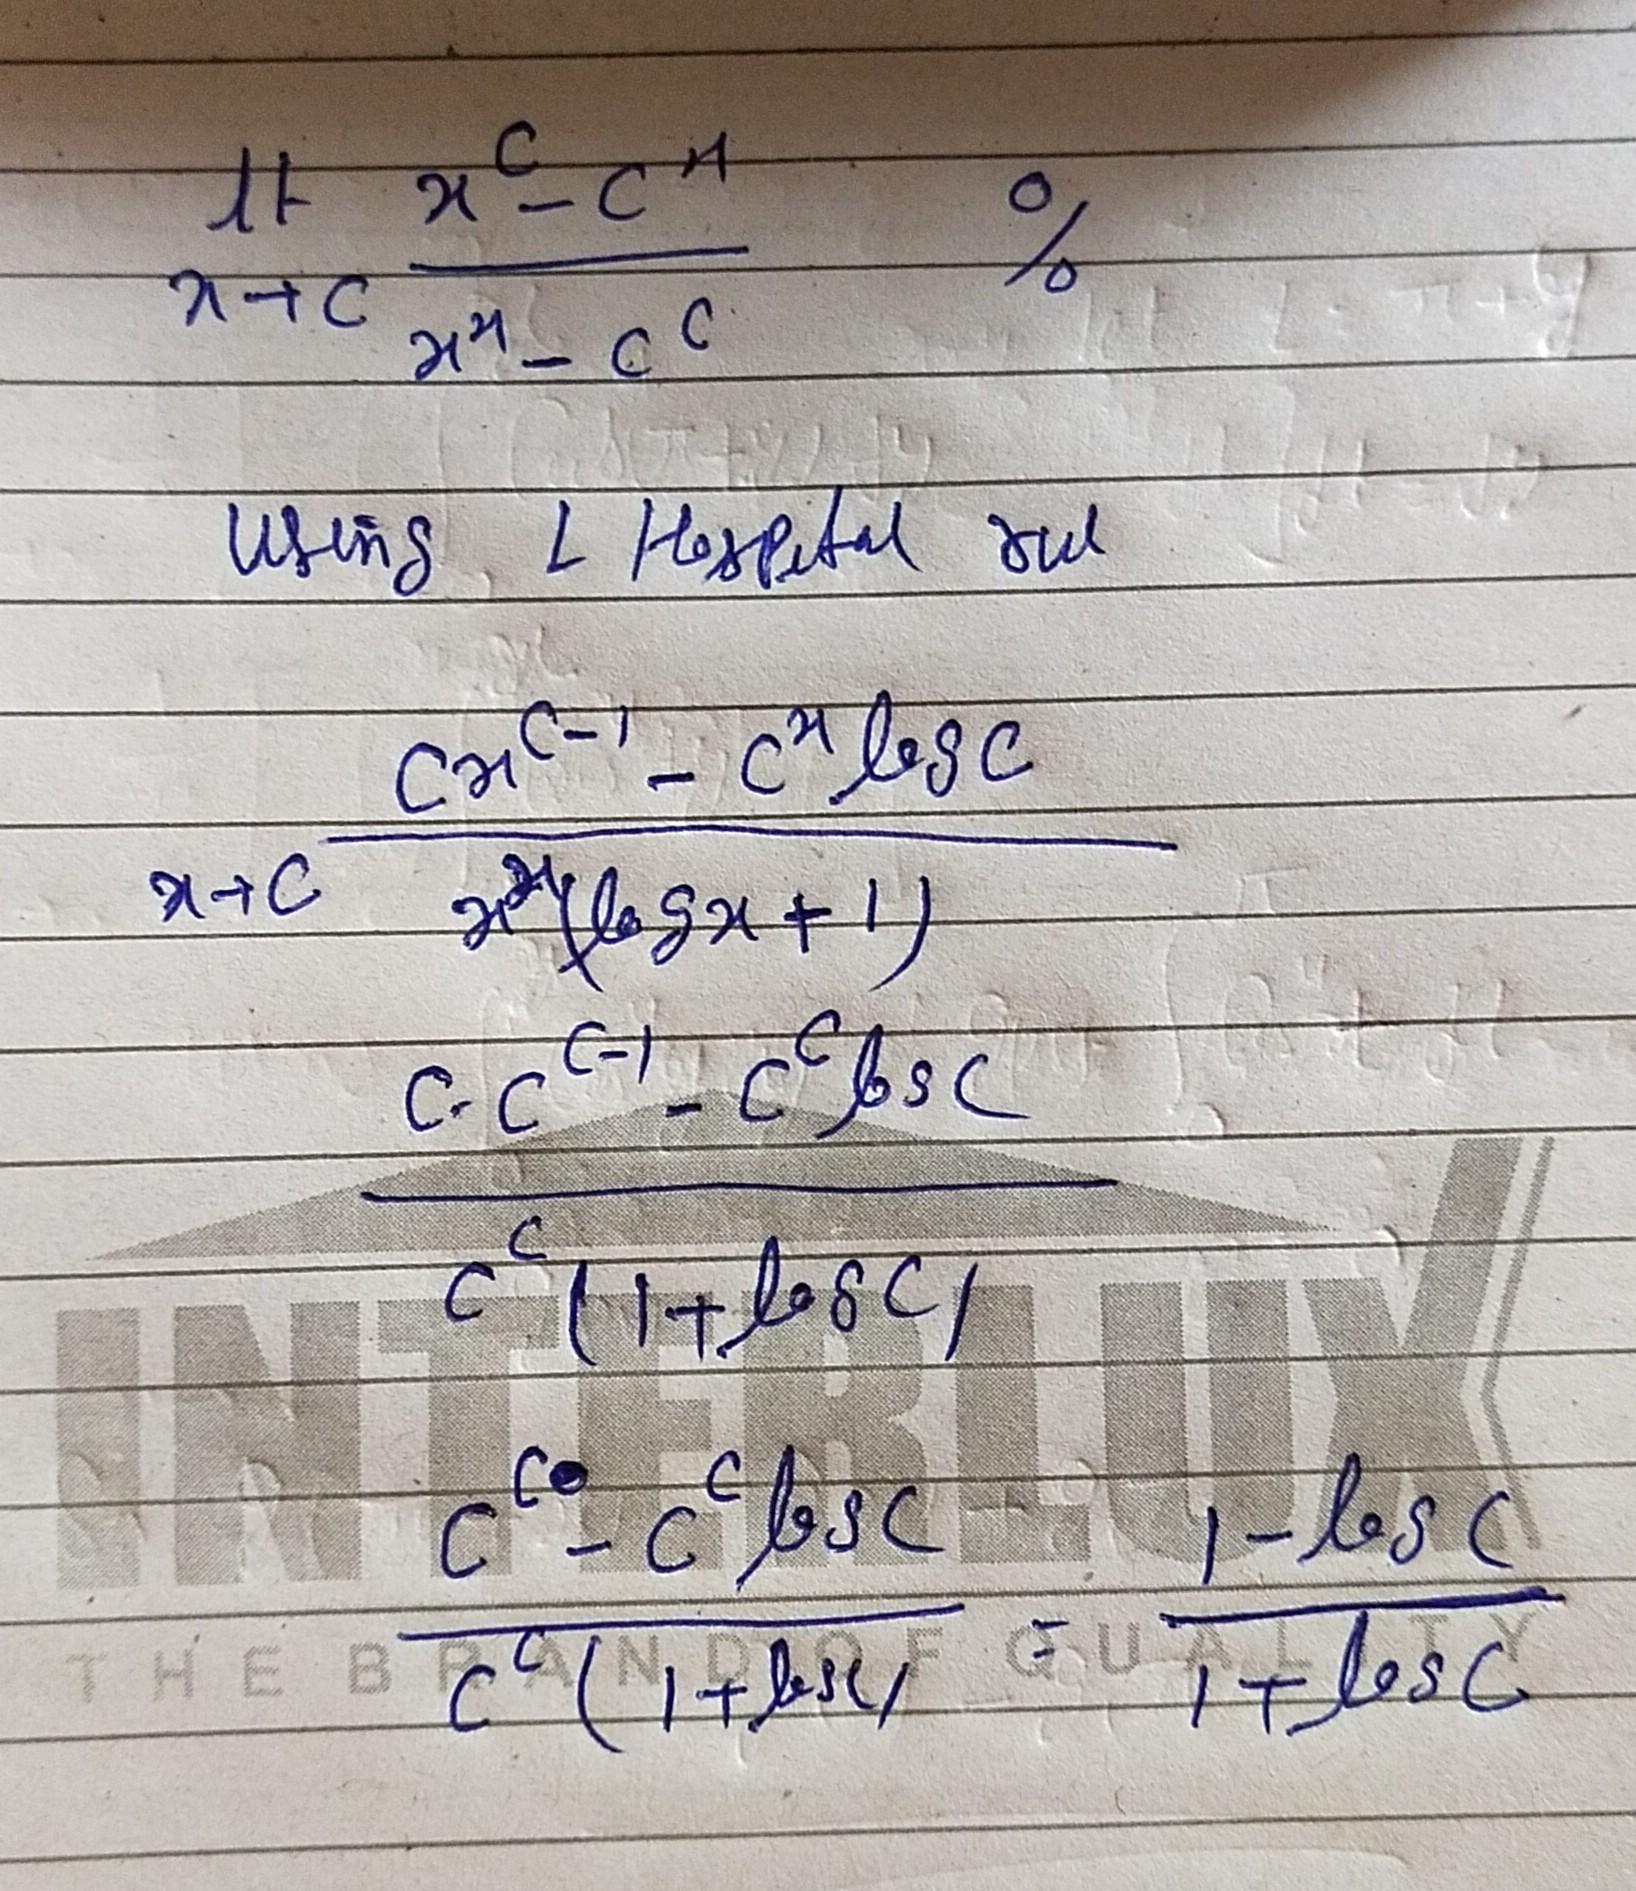 lt x→c (x^c - c^x)/(x^x - c^c) 0/0
Using L Hospital rul
x→c (cx^(c-1) - c^x log c)/(x^x(log x + 1))
(c.c^(c-1) - c^c log c)/(c^c(1 + log c))
(c^c - c^c log c)/(c^c(1 + log c)) = (1 - log c)/(1 + log c)
INTERLUX
THE BRAND OF QUALITY